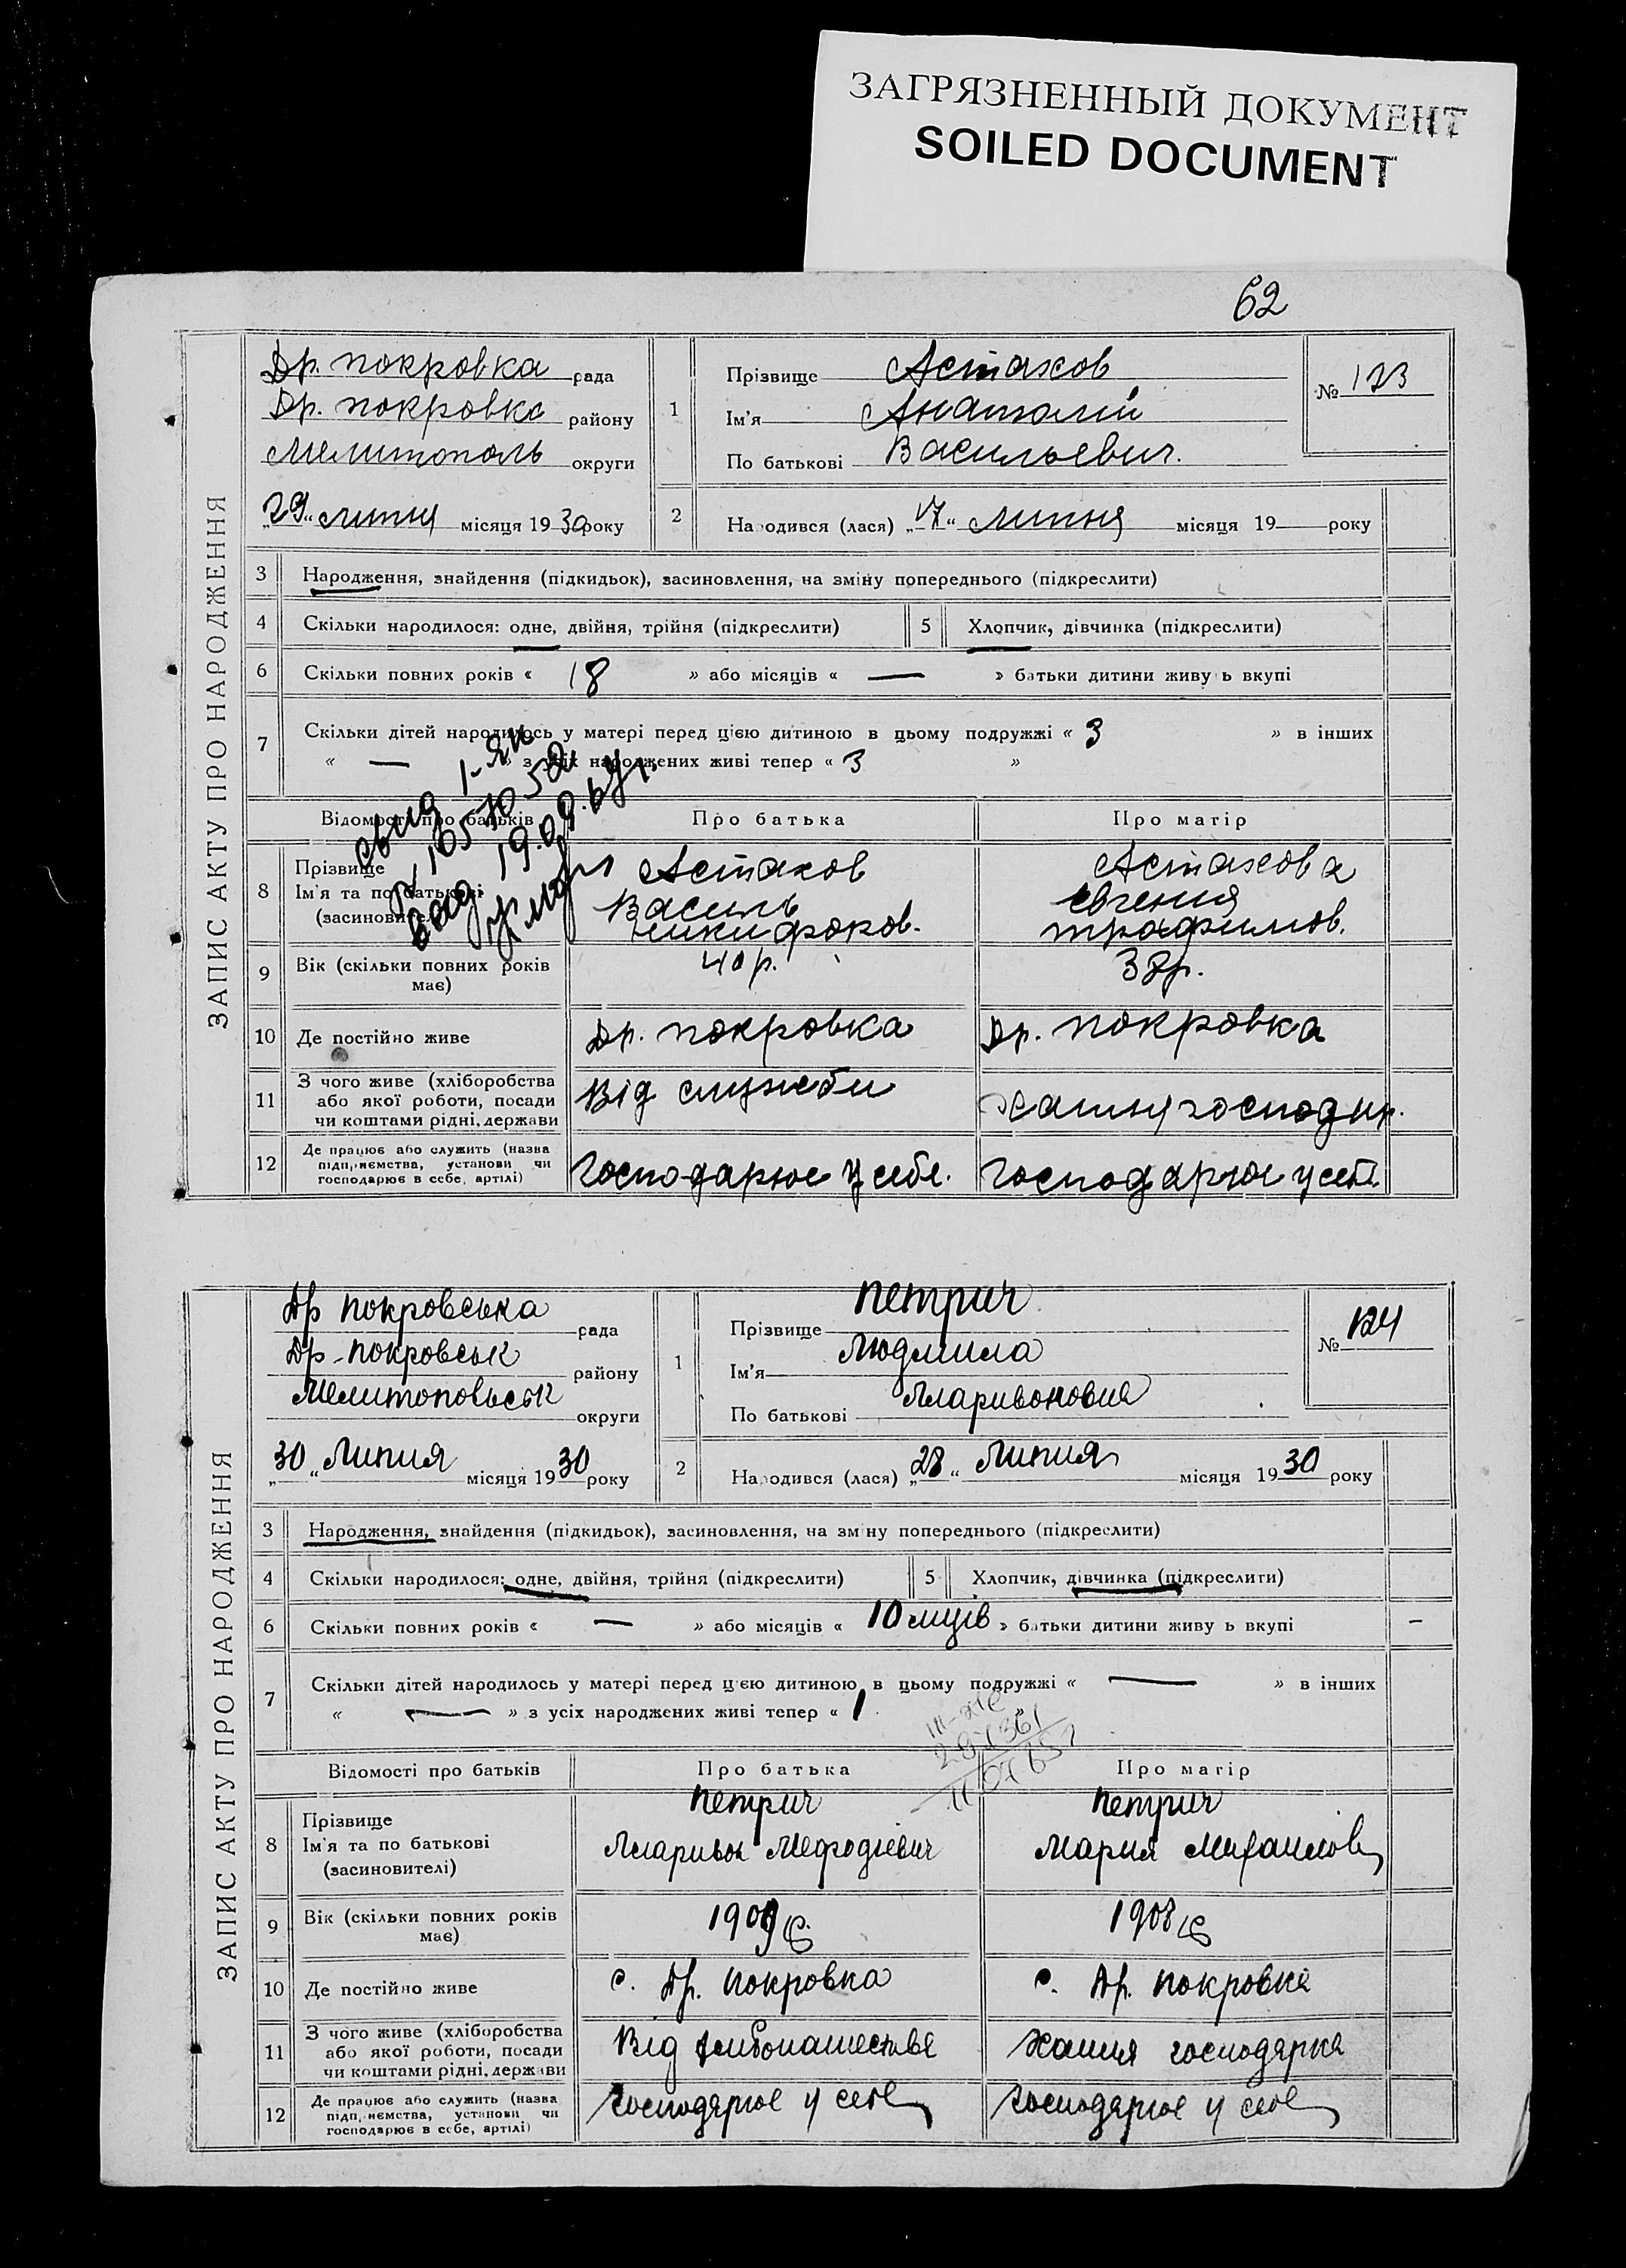 ЗАГРЯЗНЕННЫЙ ДОКУМЕНТ
SOILED DOCUMENT
62
ЗАПИС АКТУ ПРО НАРОДЖЕННЯ
Др. покровка рада
Др. покровка району
Мелитополь округи
„29“ липня місяця 1930 року
1 Прізвище Астахов
Ім'я Анатолій
По батькові Васильевич.
№ 123
2 Народився (лася) „17“ липня місяця 19 — року
3 Народження, знайдення (підкидьок), засиновлення, на зміну попереднього (підкреслити)
4 Скільки народилося: одне, двійня, трійня (підкреслити) 5 Хлопчик, дівчинка (підкреслити)
6 Скільки повних років « 18 » або місяців « — » батьки дитини живуть вкупі
7 Скільки дітей народилось у матері перед цією дитиною в цьому подружжі « 3 » в інших
« — » з усіх народжених живі тепер « 3 »
1-ЯП
19.09.69г.
Відомості про батьків Про батька Про матір
8 Прізвище Ім'я та по батькові (засновителі)
Астахов Василь никифоров.
Астахова евгения трафимов.
9 Вік (скільки повних років має) 40 р. 38р.
10 Де постійно живе Др. покровка Др. покровка
11 З чого живе (хліборобства або якої роботи, посади чи коштами рідні, держави Від служби хатня господар.
12 Де працює або служить (назва підприємства, установи чи господарює в себе, артілі) Господарює у себе. Господарює у себе
ЗАПИС АКТУ ПРО НАРОДЖЕННЯ
Др покровська рада
Др-покровськ району
Мелитопольськ округи
„30“ Липня місяця 1930 року
1 Прізвище Петрич
Ім'я Людмила
По батькові Ілларивоновна
№ 124
2 Народився (лася) „28“ Липня місяця 1930 року
3 Народження, знайдення (підкидьок), засиновлення, на зміну попереднього (підкреслити)
4 Скільки народилося: одне, двійня, трійня (підкреслити) 5 Хлопчик, дівчинка (підкреслити)
6 Скільки повних років « — » або місяців « 10 мців » батьки дитини живуть вкупі –
7 Скільки дітей народилось у матері перед цією дитиною в цьому подружжі « — » в інших
« — » з усіх народжених живі тепер « 1
Відомості про батьків Про батька Про матір
8 Прізвище Ім'я та по батькові (засиновителі)
Петрич Мефодієвич
Петрич Мария Михаилов
9 Вік (скільки повних років має) 1909 1908
10 Де постійно живе с. Др. покровка с. Др. покровка
11 З чого живе (хліборобства або якої роботи, посади чи коштами рідні, держави Від хлибопашества хатня господарка
12 Де працює або служить (назва підприємства, установи чи господарює в себе, артілі) Господарює у себе Господарює у себе